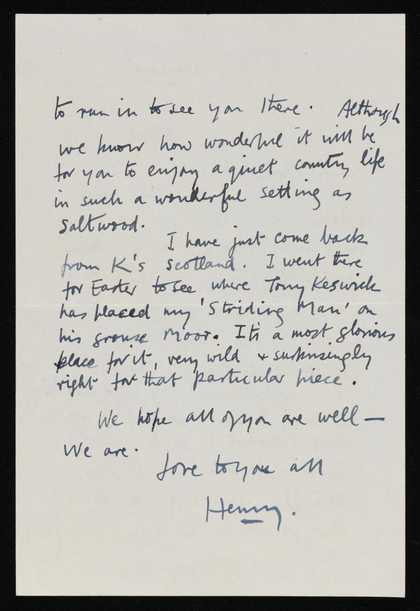 to run in to see you there. Although
we know how wonderful it will be
for you to enjoy a quiet country life
in such a wonderful setting as
Saltwood.
I have just come back
from K's Scotland. I went there
for Easter to see where Tony Keswick
has placed my 'Striding Man' on
his grouse moor. It's a most glorious
place for it, very wild & surprisingly
right for that particular piece.
We hope all of you are well —
We are.
Love to you all
Henry.